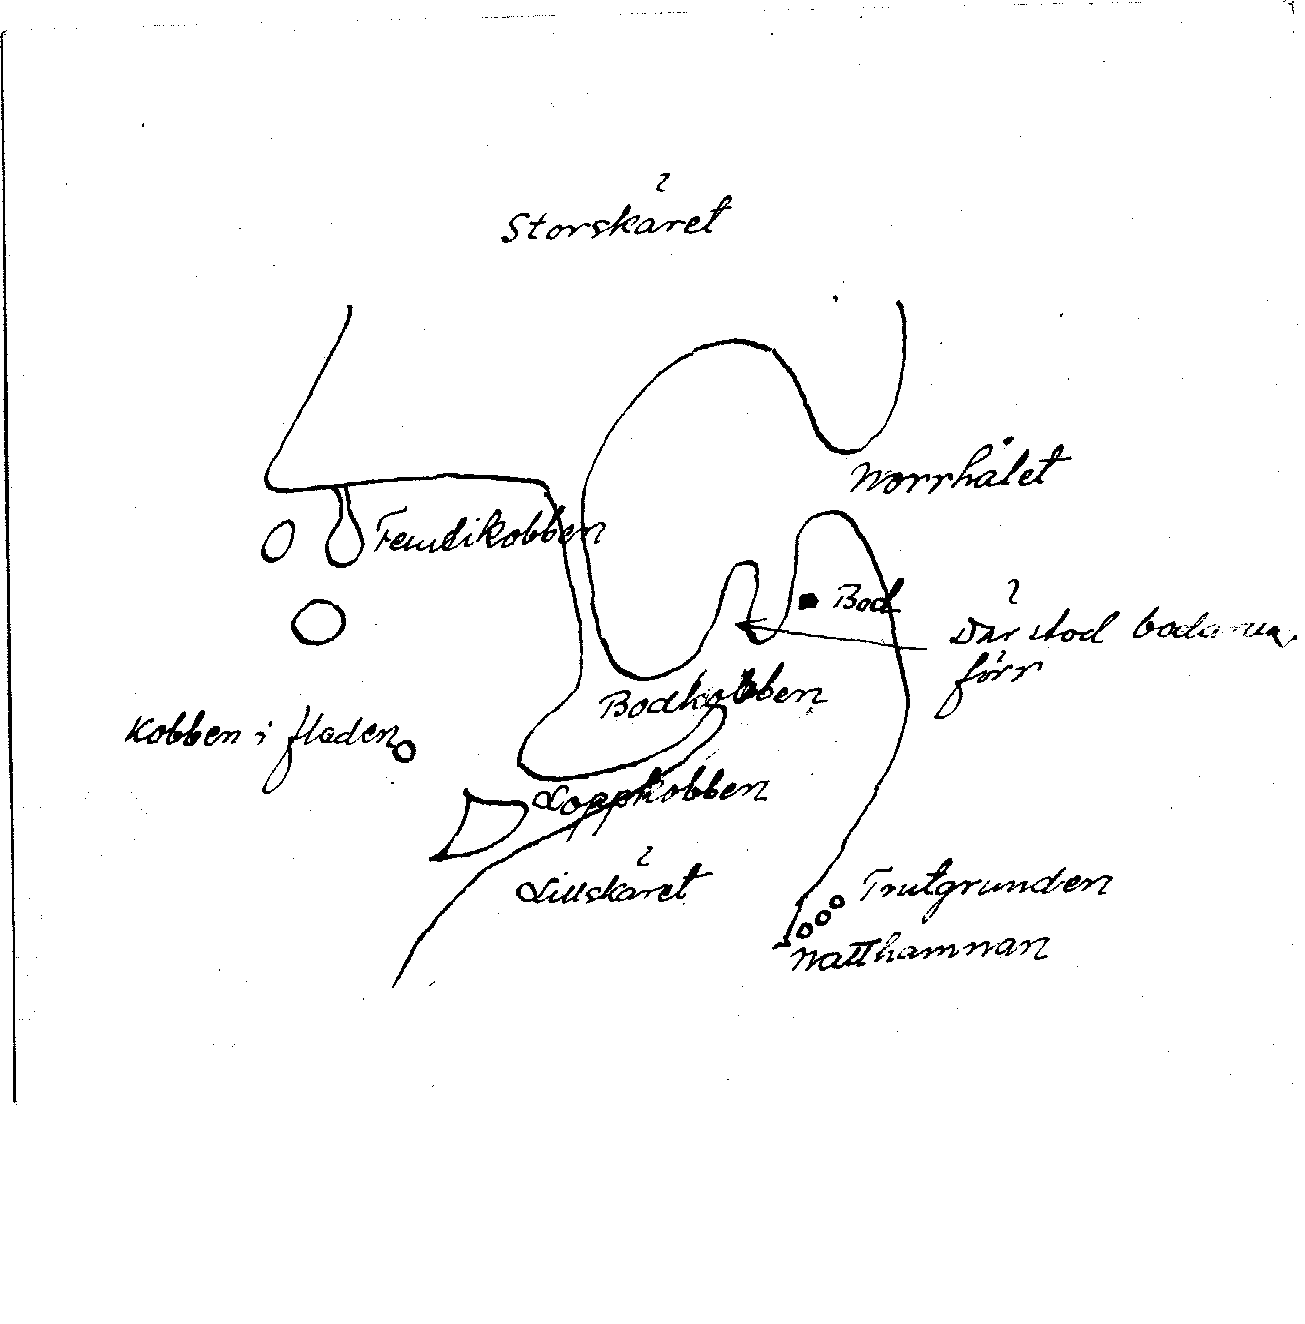 Storskäret
Norrhålet
Bod
Där stod bodarna
förr
Bodkobben
Kobben i fladen
Loppkobben
Lillskäret
Trutgrunden
Natthamnan